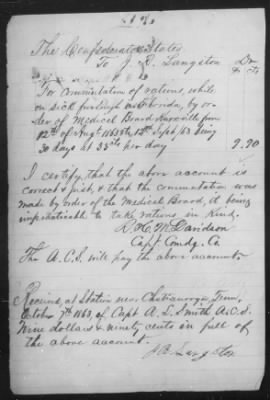 The Confederate States
To J. B. Langston Dr
$ cts
For commutation of rations, while
on sick furlough in Florida, by or-
der of Medical Board Knoxville from
12th of Augt 1863 to 10th Sept /63 being
30 days at 33cts per day 9.90
I certify, that the above account is
correct & just, & that the commutation was
made by order of the Medical Board, it being
impracticable to take rations in kind.
R. H. M. Davidson
Capt Comdg. Co
The A.C.S. will pay the above account.
Received, at Station near Chattanooga Tenn,
October 7th 1863, of Capt A. L. Smith A.C.S.
Nine dollars & ninety cents in full of
the above account.
J B Langston